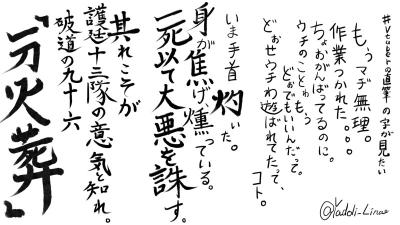 #Vtuberの直筆の字が見たい
もうマヂ無理。
作業つかれた。。。
ちょおがんばってるのに。
ウチのことゎもう
どぉでもいいんだって。
どぉせウチゎ遊ばれてたって、
コト。
いま手首灼いた。
身が焦げ燻っている。
一死以て大悪を誅す。
其れこそが
護廷十三隊の意気と知れ。
破道の九十六
『一刀火葬』